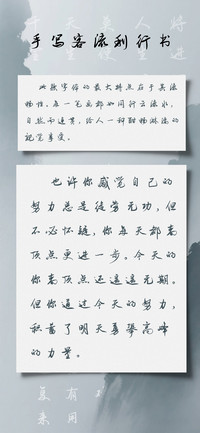 手写客流利行书
此款字体的最大特点在于其流
畅性,每一笔画都如同行云流水,
自然而连贯,给人一种酣畅淋漓的
视觉享受。
也许你感觉自己的
努力总是徒劳无功,但
不必怀疑,你每天都离
顶点更进一步。今天的
你离顶点还遥遥无期。
但你通过今天的努力,
积蓄了明天勇攀高峰
的力量。